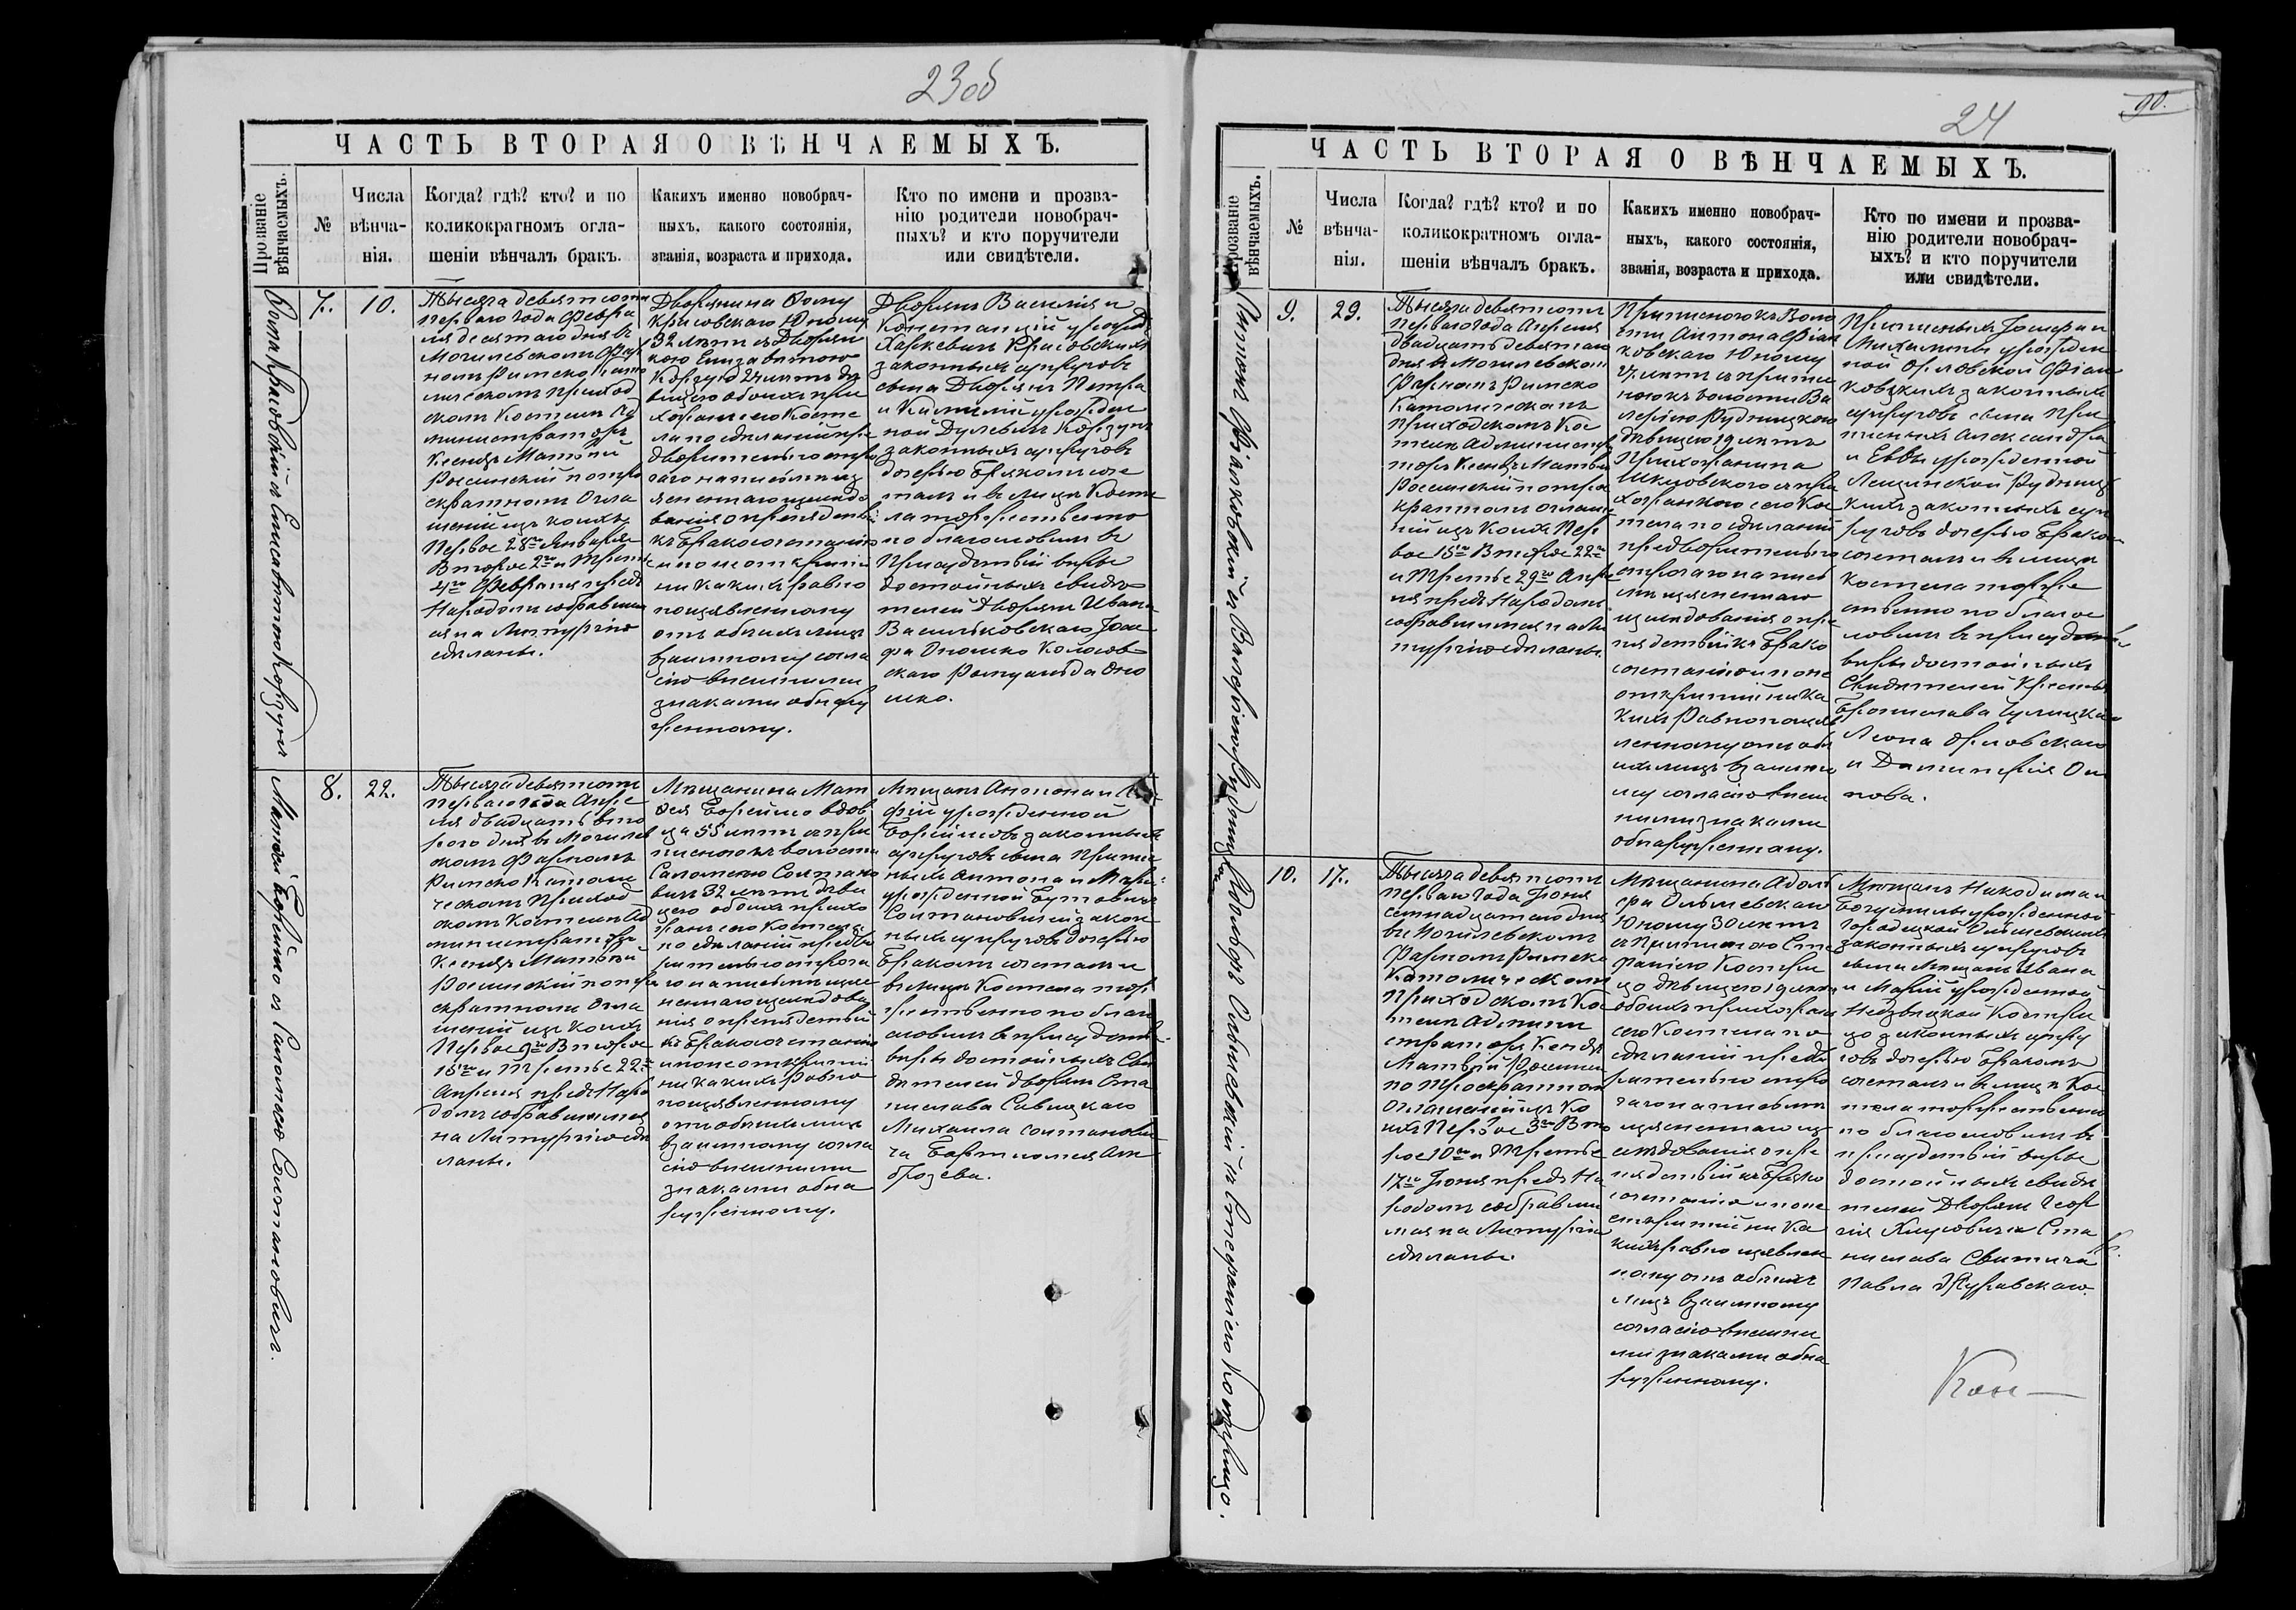 23об
ЧАСТЬ ВТОРАЯ О ВѢНЧАЕМЫХЪ.
Прозваніе вѣнчаемыхъ.
№
Числа вѣнчанія.
Когда? гдѣ? кто? и по
коликократномъ огла-
шеніи вѣнчалъ бракъ.
Какихъ именно новобрач-
ныхъ, какого состоянія,
званія, возраста и прихода.
Кто по имени и прозва-
нію родители новобрач-
ныхъ? и кто поручители
или свидѣтели.
7.
10.
Тысяча девятсотъ
перваго года Февра
ля десятаго дня въ
Могилевскомъ Фар
номъ Римско Като
лическомъ Приход
скомъ Костелѣ Ад
министраторъ
Ксендзъ Матвѣй
по тро
екратномъ Огла
шеніи изъ коихъ
Первое 28го Января
Второе 2го и Третье
4го Февраля предъ
Народомъ собравшим
ся на Литургію
сдѣланы.
Дворянина Фому
Красовскаго Юношу
32 лѣтъ съ Дворян
кою Елизаветою
Корзунъ 24 лѣтъ дѣ
вицею обоихъ при
хожанъ сего Косте
ла по сдѣланіи пре
дворительно стро
гаго на письмѣ из
ясненнаго изслѣдо
ванія о препядствіи
къ бракосочетанію
и по неоткрытіи
никакихъ равно
по изявленному
отъ обоихъ лицъ
взаимному согла
сію внѣшними
знаками обнару
женному.
Дворянъ Василія и
Констанціи урожд
Харкевичъ Красовскихъ
законныхъ супруговъ
сына Дворянъ Петра
и Камиліи урожден
ной Дулевичъ Корзунъ
законныхъ супруговъ
дочерью бракомъ соче
талъ и въ лицѣ Косте
ла торжественно
поблагословилъ въ
Присудствіи вѣры
достойныхъ свидѣ
телей Дворянъ Ивана
Васильковскаго Іоси
фа Опошко Колосов
скаго Ромуальда Опо
шко.
8.
22.
Тысяча девятсотъ
перваго года Апрѣ
ля двадцать вто
рого дня въ Могилев
скомъ Фарномъ
Римско Католи
ческомъ Приход
скомъ Костелѣ Ад
министраторъ
Ксендзъ Матвѣй
по тро
екратномъ Огла
шеніи изъ коихъ
Первое 9го Второе
15го и Третье 22го
Апрѣля предъ Наро
домъ собравшимся
на Литургію сдѣ
ланы.
Мѣщанина Мат
вея Борейшо вдов
ца 55 лѣтъ съ при
писною къ волости
Саломеею Солтано
вичъ 32 лѣтъ дѣви
цею обоихъ прихо
жанъ сего Костела
по сдѣланіи предво
рительно строга
го на письмѣ изяс
неннаго изслѣдова
нія о препядствіи
къ бракосочетанію
и по неоткрытіи
никакихъ равно
по изявленному
отъ обоихъ лицъ
взаимному согла
сію внѣшними
знаками обна
руженному.
Мѣщанъ Антона и
урожденной
Борейшовъ законныхъ
супруговъ сына Припис
ныхъ Антона и Маріи
урожденной Бутовичъ
Солтановичей закон
ныхъ супруговъ дочерью
бракомъ сочеталъ и
въ лицѣ Костела тор
жественно поблаго
словилъ въ присудствіи
вѣры достойныхъ Сви
дѣтелей Дворянъ Ста
нислава Савицкаго
Михаила Солтанови
ча Бартиломея Ам
брозева.
Фома Красовскій съ Елисаветою Корзунъ
Матвѣй Борейшо съ Саломеею Солтановичъ.
24
90.
ЧАСТЬ ВТОРАЯ О ВѢНЧАЕМЫХЪ.
Прозваніе вѣнчаемыхъ.
№
Числа вѣнчанія.
Когда? гдѣ? кто? и по
коликократномъ огла-
шеніи вѣнчалъ бракъ.
Какихъ именно новобрач-
ныхъ, какого состоянія,
званія, возраста и прихода.
Кто по имени и прозва-
нію родители новобрач-
ыхъ? и кто поручители
или свидѣтели.
9.
29.
Тысяча девятсотъ
перваго года Апреля
двадцать девятаго
дня въ Могилевскомъ
Фарномъ Римско
Католическомъ
Приходскомъ Кос
телѣ Администра
торъ Ксендзъ Матвей
по трое
кратномъ оглаше
ніи изъ коихъ Пер
вое 15го Второе 22го
и Третье 29го Апре
ля предъ Народомъ
собравшимся на Ли
тургію сдѣланы.
Приписного къ Воло
сти Антона Фіал
ковскаго Юношу
лѣтъ съ припис
ною къ волости Ва
леріею Рудницкою
дѣвицею 19 лѣтъ
Прихожанина
Шкловскаго съ при
хожанкою сего Кос
тела по сдѣланіи
предворительно
строгаго на пись
мѣ изясненнаго
изслѣдованія о пре
пядствіи къ брако
сочетанію и по не
открытіи ника
кихъ равно по изяв
ленному отъ обо
ихъ лицъ взаимно
му согласію внѣш
ними знаками
обнаруженному.
Приписныхъ Іосифа и
Михалины урожден
ной Орловской Фіал
ковскихъ законныхъ
супруговъ сына При
писныхъ Александра
и Еввы урожденной
Лещинской Рудниц
кихъ законныхъ суп
руговъ дочерью брако
сочеталъ и въ лицѣ
Костела торже
ственно поблагос
ловилъ въ присудствіи
вѣры достойныхъ
Свидѣтелей Крестьянъ
Бронислава
Леона Орловскаго
и
10.
17.
Тысяча девятсотъ
перваго года Іюня
семнадцатаго дня
въ Могилевскомъ
Фарномъ Римско
Католическомъ
Приходскомъ Ко
стелѣ Админи
страторъ Ксендзъ
Матвѣй
по Троекратномъ
Оглашеніи изъ Ко
ихъ Первое 3го Вто
рое 10го и Третье
17го Іюня предъ На
родомъ собравши
мся на Литургію
сдѣланы.
Мѣщанина Адоль
фа Ольшевскаго
Юношу 30 лѣтъ
съ Приписною Сте
фаніею Костри
цо дѣвицею 19 лѣтъ
обоихъ прихожанъ
сего Костела по
сдѣланіи предво
рительно стро
гаго на письмѣ
изясненнаго из
слѣдованія о пре
пядствіи къ брако
сочетанію и по не
открытіи ника
кихъ равно изявлен
ному отъ обоихъ
лицъ взаимному
согласію внѣшни
ми знаками обна
руженному.
Мѣщанъ Никодима и
урожденной
Городецкой Ольшевскихъ
законныхъ супруговъ
сына Мѣщанъ Ивана
и Маріи урожденной
Костри
цо законныхъ супру
говъ дочерью бракомъ
сочеталъ и въ лицѣ Кос
тела торжественно
поблагословилъ въ
присудствіи вѣры
достойныхъ свидѣ
телей Дворянъ
Ста
нислава
Павла Журавскаго
Антонъ Фіалковскій съ Валеріею Рудницкою
Адольфъ Ольшевскій съ Стефаніею Кострицо.